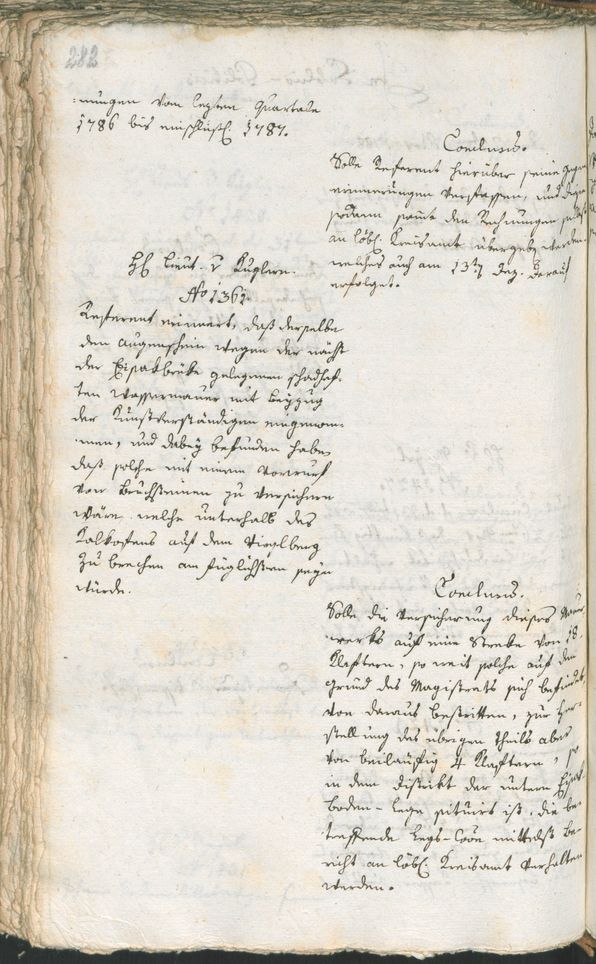 282
:nungen vom lezten Quartale
1786 bis einschlüßl. 1787.
Conclusum.
Solle Referent hierüber seine gegen
erinnerungen verfassen, und diese
sodann samt den Rechnungen selbst
an löbl. Kreisamt übergeben werden.
welches auch am 13ten Dez. darauf
erfolget.
H. Lieut. v. Kuglern.
No 1361.
Referent erinnert, daß derselbe
den Augenschein wegen der nächst
der Eisakbrüke gelegenen schadhaf-
ten Wassermauer mit Beyzug
der Kunstverständigen eingenom-
men, und dabey befunden habe,
daß solche mit einem Vorwurf
von Bruchsteinen zu versichern
wäre, welche unterhalb des
Kalkofens auf dem Virglberg
zu brechen am füglichsten seyn
würde.
Conclusum.
Solle die Versicherung dieses Mauer
werks auf eine Streke von 18
Klaftern, so weit solche auf dem
Grund des Magistrats sich befindet
von daraus bestritten, zur Her-
stellung des übrigen Theils aber
von beiläufig 4 Klaftern, so
in dem Distrikt der untern Eisak
boden-Lege situirt ist, die be-
treffende Legs- mittelst Be-
richt an löbl. Kreisamt verhalten
werden.